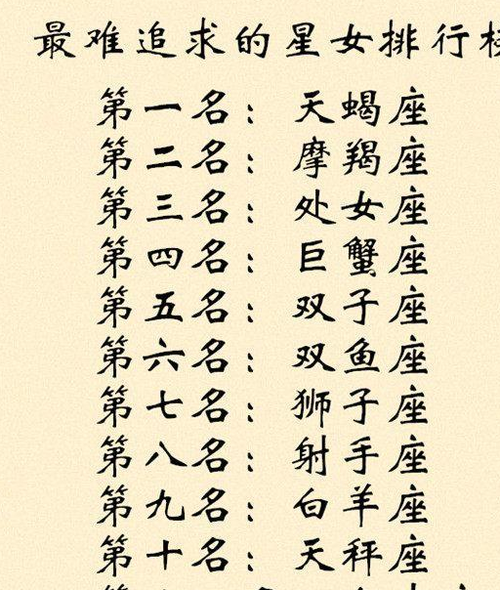 最难追求的星女排行
第一名：天蝎座
第二名：摩羯座
第三名：处女座
第四名：巨蟹座
第五名：双子座
第六名：双鱼座
第七名：狮子座
第八名：射手座
第九名：白羊座
第十名：天秤座